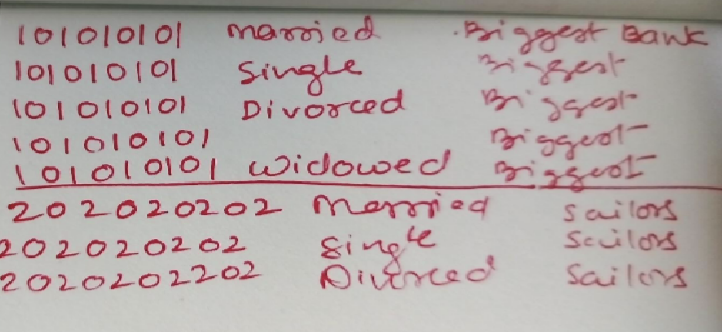 101010101 married Biggest Bank
101010101 Single Biggest
101010101 Divorced Biggest
101010101 Biggest
101010101 Widowed Biggest
202020202 married Sailors
202020202 Single Sailors
2020202202 Divorced Sailors